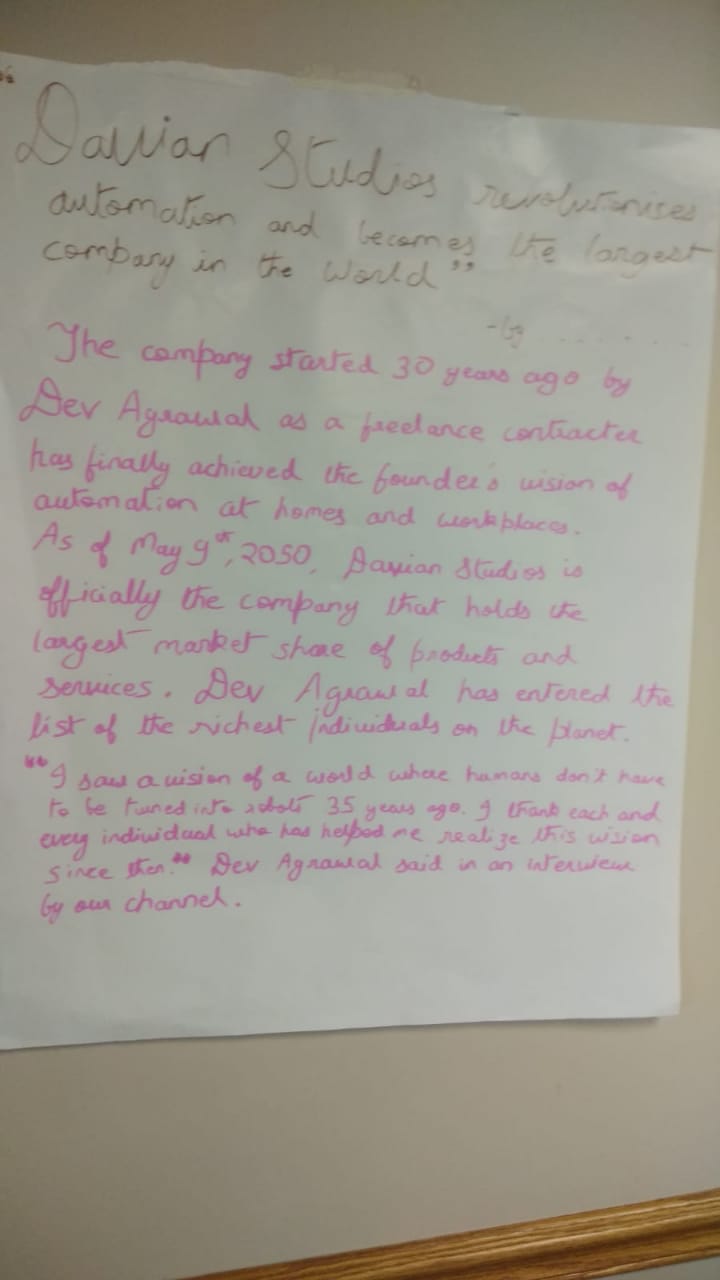 Davian Studios revolutionises
automation and becomes the largest
company in the World"
- by . . . . . . . .
The company started 30 years ago by
Dev Agrawal as a freelance contracter
has finally achieved the founder's vision of
automation at homes and workplaces.
As of May 9th, 2050, Davian Studios is
officially the company that holds the
largest market share of products and
services. Dev Agrawal has entered the
list of the richest individuals on the planet.
"I saw a vision of a world where humans don't have
to be turned into robots 35 years ago. I thank each and
every individual who has helped me realize this vision
since then." Dev Agrawal said in an interview
by our channel.